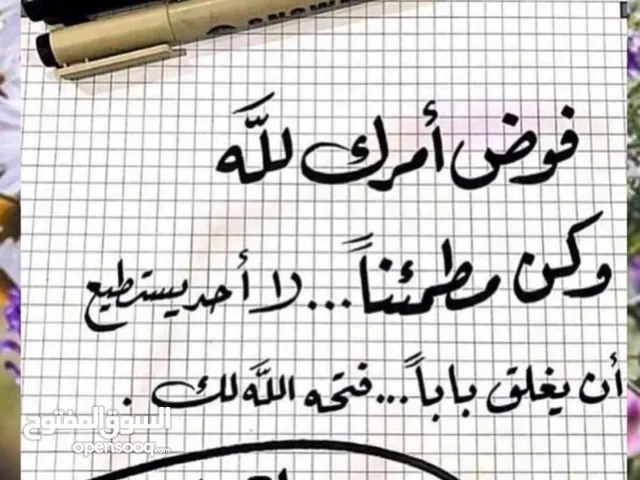 فوض أمرك للَّه
وكن مطمئناً...لا أحد يستطيع
أن يغلق باباً...فتحه اللَّه لك .
السوق المفتوح
opensooq.com